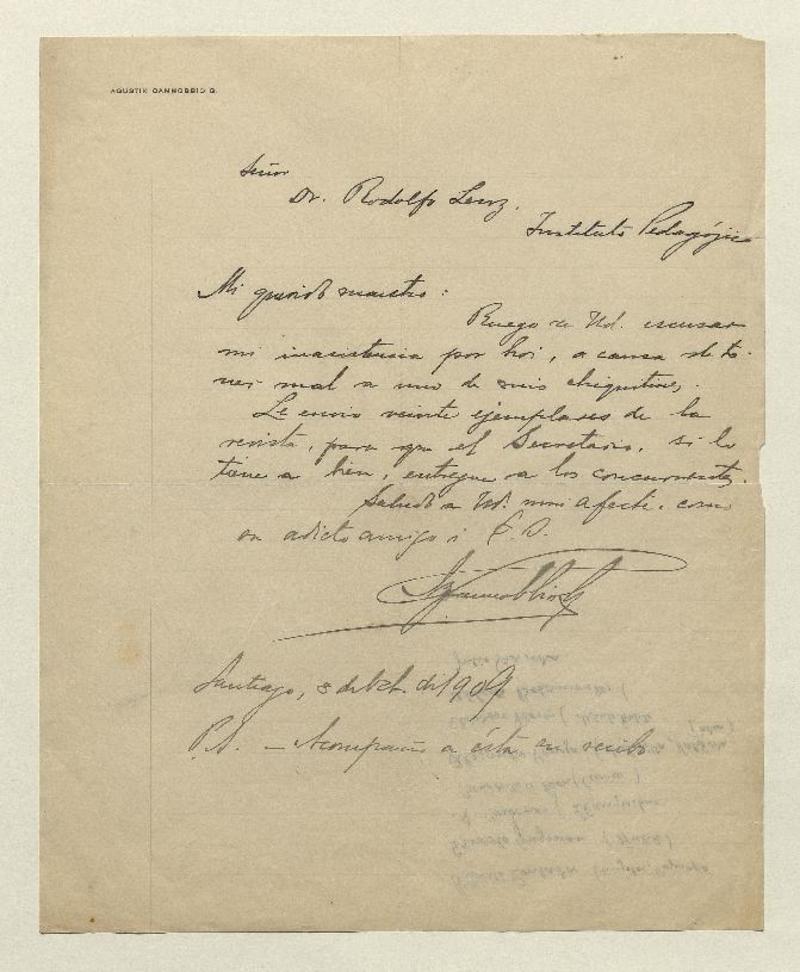 AGUSTIN CANNOBBIO G.
Señor
Dr. Rodolfo Lenz.
Instituto Pedagójico
Mi querido maestro:
Ruego a Ud. escusar
mi inasistencia por hoi, a causa de te-
ner mal a uno de mis chiquitines.
Le envío veinte ejemplares de la
revista, para que el Secretario, si lo
tiene a bien, entregue a los concurrentes.
Saludo a Ud. mui afect. como
su adicto amigo i S.S.
A Cannobbio G
Santiago, 8 de bre. de 1909
P.S. — Acompaño a ésta un recibo